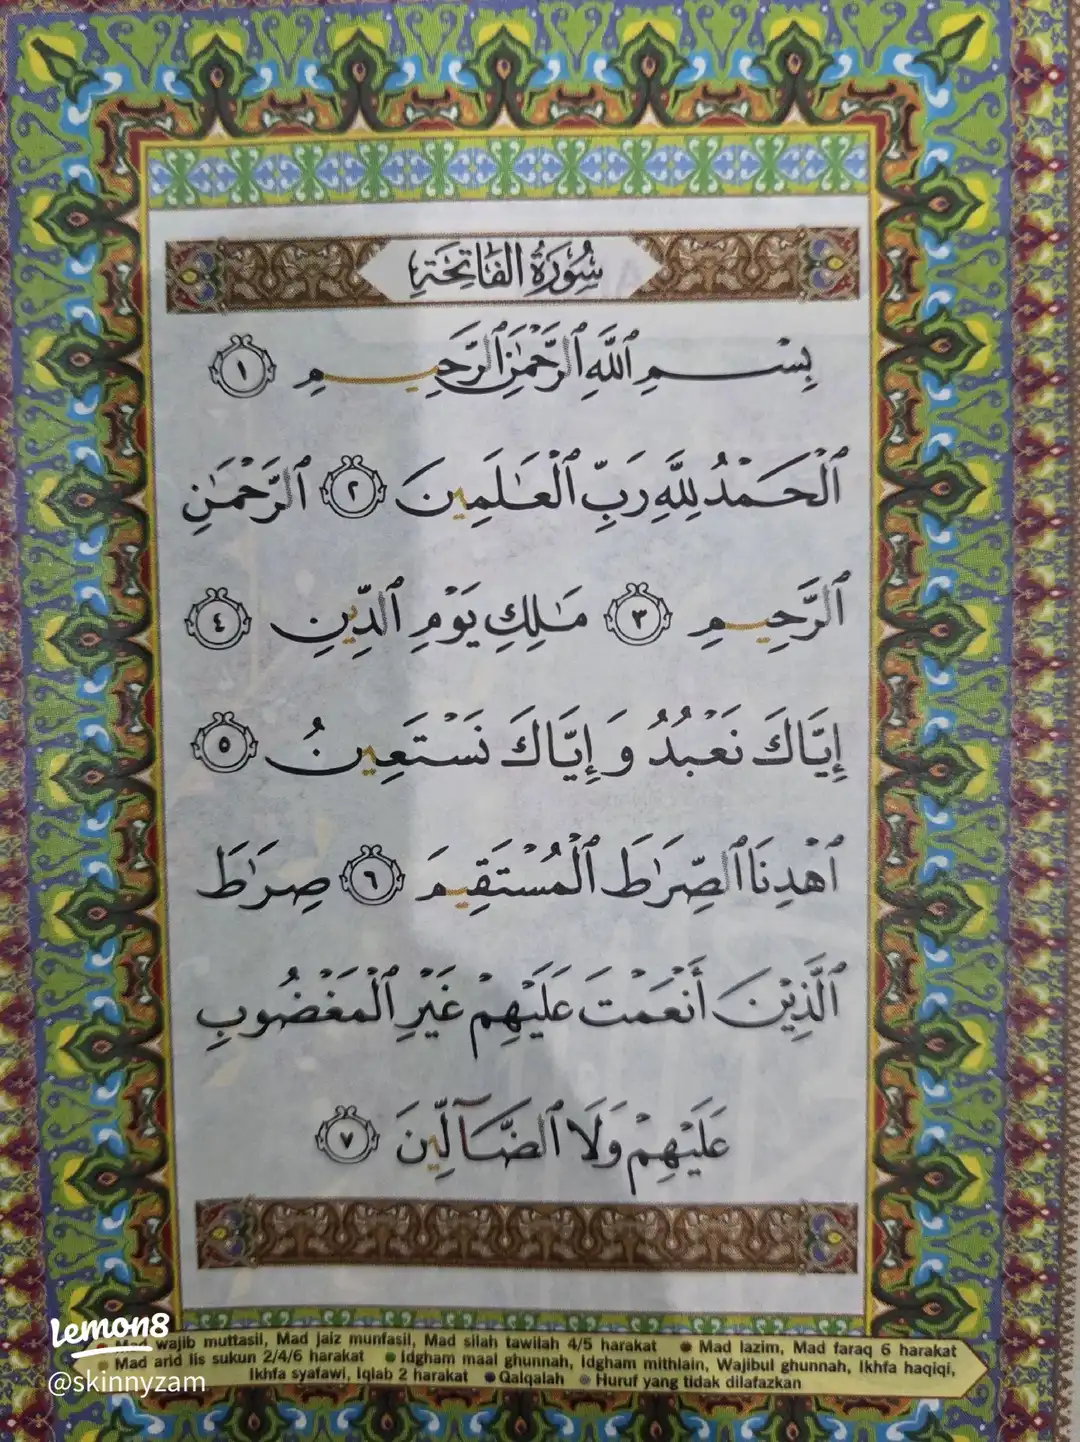 سُورَةُ الفَاتِحَةِ
بِسْمِ ٱللَّهِ ٱلرَّحْمَٰنِ ٱلرَّحِيمِ ١
ٱلْحَمْدُ لِلَّهِ رَبِّ ٱلْعَٰلَمِينَ ٢ ٱلرَّحْمَٰنِ
ٱلرَّحِيمِ ٣ مَٰلِكِ يَوْمِ ٱلدِّينِ ٤
إِيَّاكَ نَعْبُدُ وَإِيَّاكَ نَسْتَعِينُ ٥
ٱهْدِنَا ٱلصِّرَٰطَ ٱلْمُسْتَقِيمَ ٦ صِرَٰطَ
ٱلَّذِينَ أَنْعَمْتَ عَلَيْهِمْ غَيْرِ ٱلْمَغْضُوبِ
عَلَيْهِمْ وَلَا ٱلضَّآلِّينَ ٧
Mad wajib muttasil, Mad jaiz munfasil, Mad silah tawilah 4/5 harakat ● Mad lazim, Mad faraq 6 harakat
● Mad arid lis sukun 2/4/6 harakat ● Idgham maal ghunnah, Idgham mithlain, Wajibul ghunnah, Ikhfa haqiqi,
Ikhfa syafawi, Iqlab 2 harakat ● Qalqalah ● Huruf yang tidak dilafazkan
Lemon8
@skinnyzam